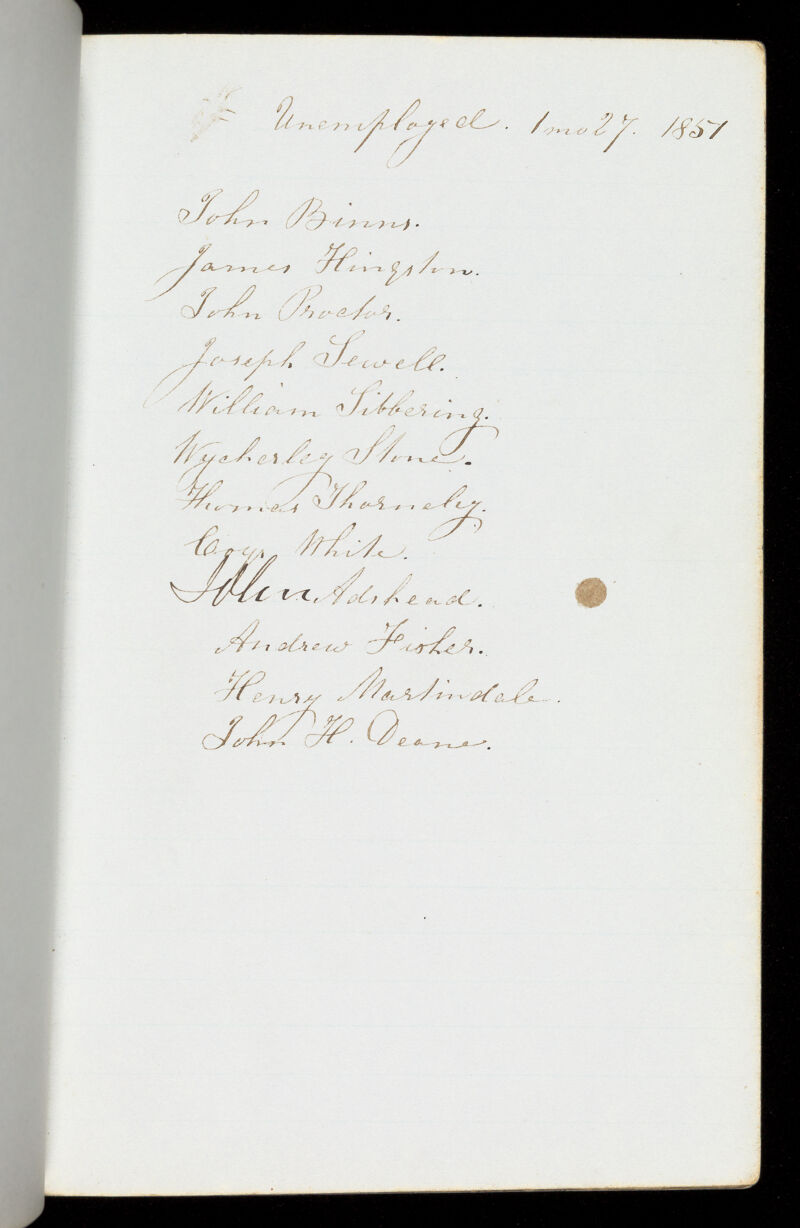 Unemployed. 1mo 27. 1851
John Binns.
James Hingston.
John Proctor.
Joseph Sewell.
William Sibbering.
Wycherley Stone.
Thomas Thorneley.
White.
John Adshead.
Andrew Fisher.
Henry Martindale.
John H. Deane.